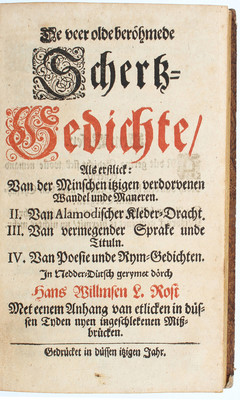 De veer olde beröhmede
Schertz-
Gedichte/
Als erstlick:
Van der Minschen itzigen verdorvenen
Wandel unde Maneren.
II. Van Alamodischer Kleder-Dracht.
III. Van vermengder Sprake unde
Tituln.
IV. Van Poesie unde Rym-Gedichten.
In Nedder-Dütsch gerymet dörch
Hans Willmsen L. Rost
Met eenem Anhang van etlicken in düs-
sen Tyden nyen ingeschlekenen Miß-
brücken.
Gedrücket in düssen itzigen Jahr.